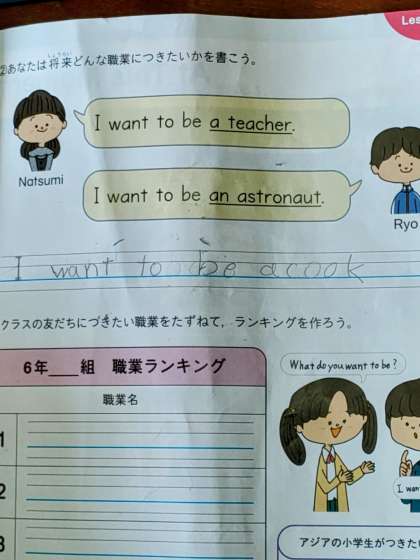 Les
②あなたは将来どんな職業につきたいかを書こう。
しょうらい
I want to be a teacher.
Natsumi
I want to be an astronaut.
Ryo
I want to be a cook
クラスの友だちにつきたい職業をたずねて，ランキングを作ろう。
6年___組 職業ランキング
職業名
What do you want to be?
1
2
3
I wan
アジアの小学生がつきたい